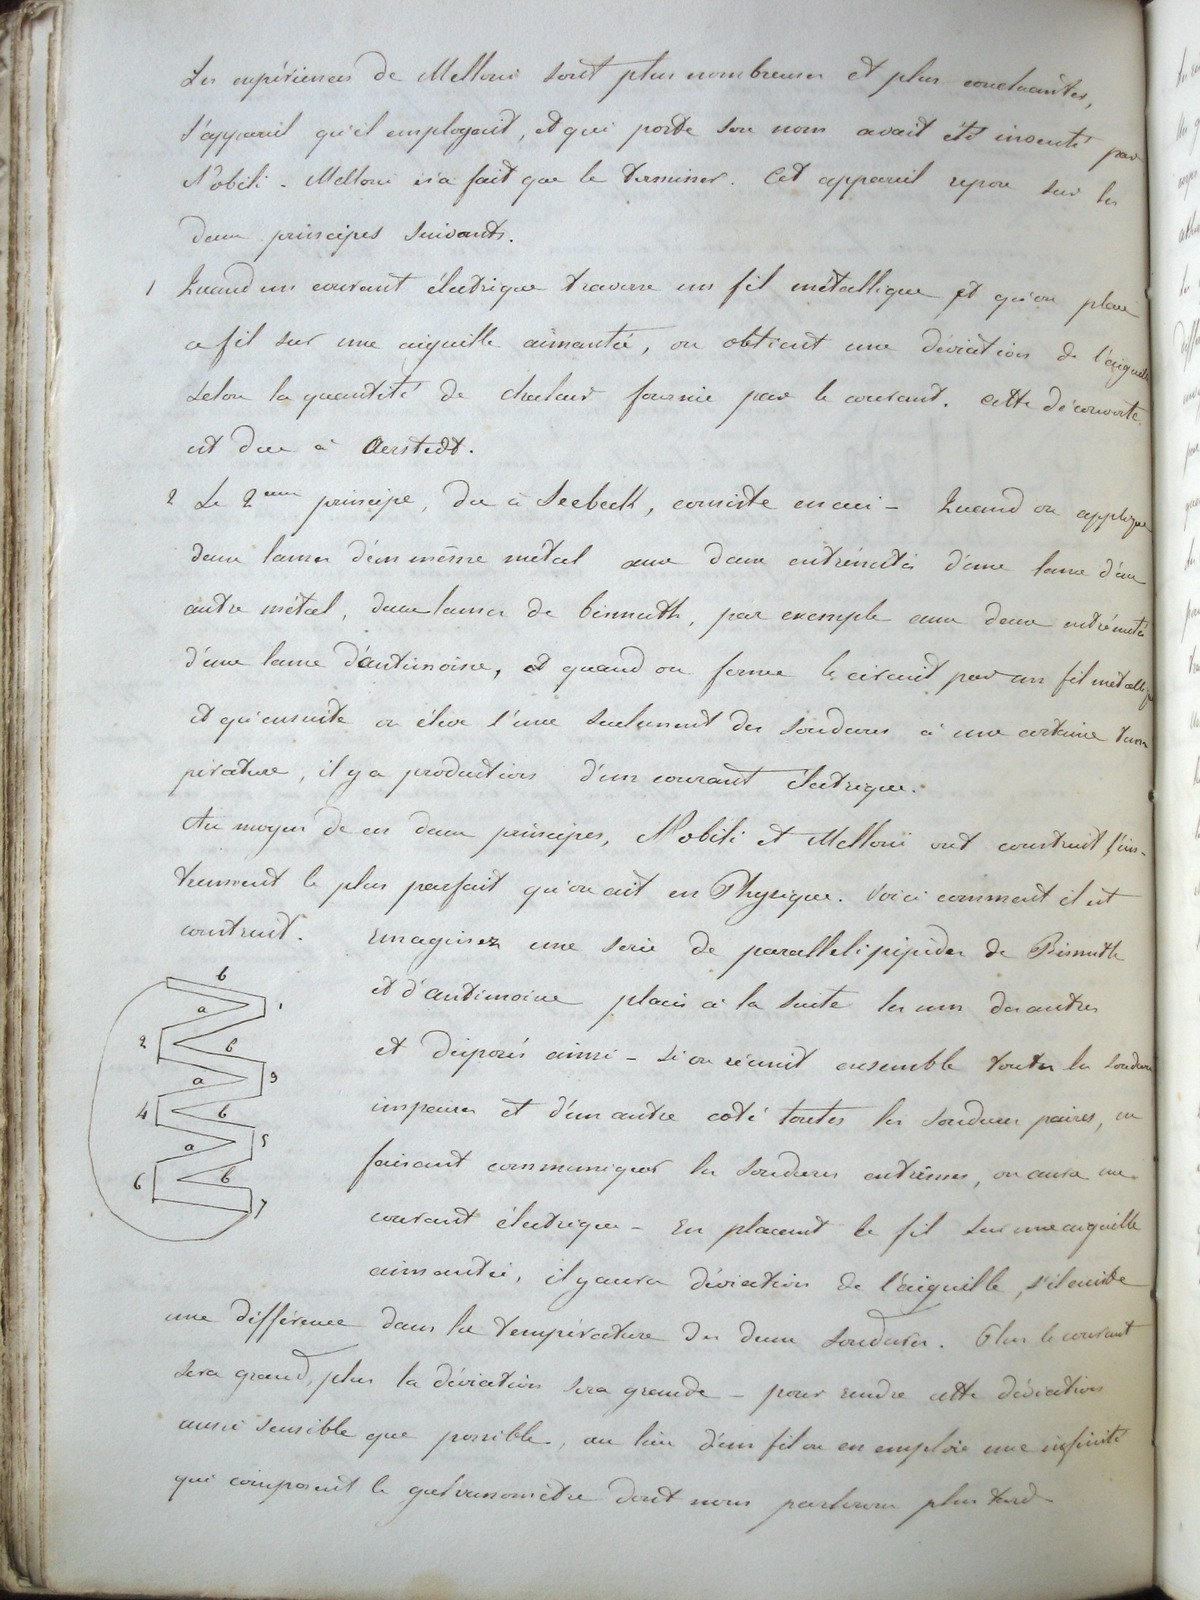 Les expériences de Melloni sont plus nombreuses et plus concluantes,
l'appareil qu'il employait, et qui porte son nom avait été inventé par
Nobili - Melloni n'a fait que le terminer. Cet appareil repose sur les
deux principes suivants.
1 Quand un courant électrique traverse un fil métallique et qu'on place
ce fil sur une aiguille aimantée, on obtient une déviation de l'aiguille
selon la quantité de chaleur fournie par le courant. cette découverte
est due à Oerstedt.
2 Le 2eme principe, du à Seebeck, consiste en ceci - Quand on applique
deux lames d'un même métal aux deux extrémités d'une lame d'un
autre métal, deux lames de bismuth, par exemple aux deux extrémités
d'une lame d'antimoine, et quand on ferme le circuit par un fil métallique
et qu'ensuite on élève l'une seulement des soudures à une certaine tem
pérature, il y a production d'un courant électrique.
Au moyen de ces deux principes, Nobili et Melloni ont construit l'ins-
trument le plus parfait qu'on ait en Physique. Voici comment il est
construit. Imaginez une serie de parallelipipèdes de Bismuth
et d'antimoine placés à la suite les uns des autres
et disposés ainsi - Si on réunit ensemble toutes les soudures
impaires et d'un autre coté toutes les soudures paires, en
faisant communiquer les soudures extrêmes, on aura un
courant électrique - En placant le fil sur une aiguille
aimantée, il y aura déviation de l'aiguille, s'il existe
une différence dans la température des deux soudures. Plus le courant
sera grand, plus la déviation sera grande - pour rendre cette déviation
aussi sensible que possible, au lieu d'un fil on en emploie une infinité
qui composent le galvanomètre dont nous parlerons plus tard -
b
a 1
2 b
a 3
4 b
a 5
6 b
7